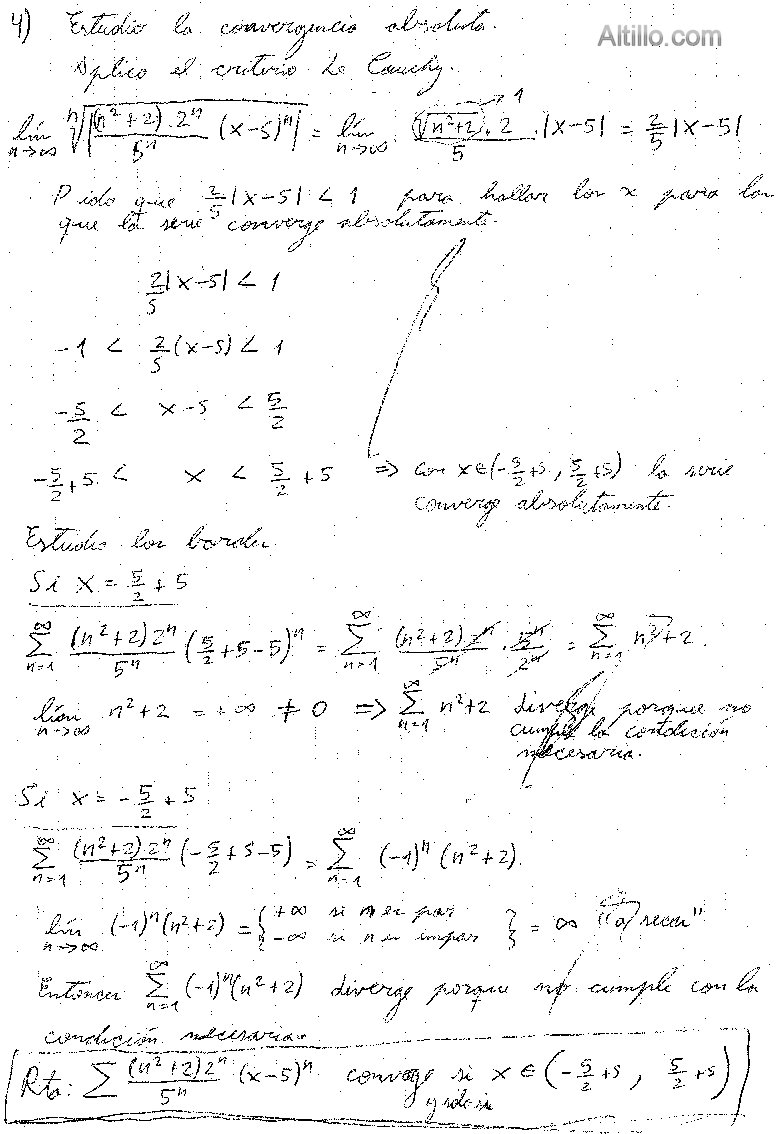 Altillo.com
4) Estudio la convergencia absoluta.
Aplico el criterio de Cauchy.
lím n→∞ ⁿ√|(n²+2).2ⁿ/5ⁿ (x-5)ⁿ| = lím n→∞ ⁿ√(n²+2) → 1 . 2/5 . |x-5| = 2/5 |x-5|
Pido que 2/5 |x-5| < 1 para hallar los x para los
que la serie converge absolutamente.
2/5 |x-5| < 1
-1 < 2/5 (x-5) < 1
-5/2 < x-5 < 5/2
-5/2 + 5 < x < 5/2 + 5 ⇒ con x∈(-5/2+5, 5/2+5) la serie
converge absolutamente.
Estudio los bordes
Si x = 5/2 + 5
∑ n=1 ∞ (n²+2)2ⁿ/5ⁿ (5/2+5-5)ⁿ = ∑ n=1 ∞ (n²+2)2ⁿ/5ⁿ . 5ⁿ/2ⁿ = ∑ n=1 ∞ n²+2.
lím n→∞ n²+2 = +∞ ≠ 0 ⇒ ∑ n=1 ∞ n²+2 diverge porque no
cumple la condición
necesaria.
Si x = -5/2 + 5
∑ n=1 ∞ (n²+2).2ⁿ/5ⁿ (-5/2+5-5) = ∑ n=1 ∞ (-1)ⁿ (n²+2).
lím n→∞ (-1)ⁿ(n²+2) = { +∞ si n es par
-∞ si n es impar } = ∞ "a secas"
Entonces ∑ n=1 ∞ (-1)ⁿ(n²+2) diverge porque no cumple con la
condición necesaria.
Rta: ∑ (n²+2)2ⁿ/5ⁿ (x-5)ⁿ converge si x ∈ (-5/2+5, 5/2+5)
y sólo si